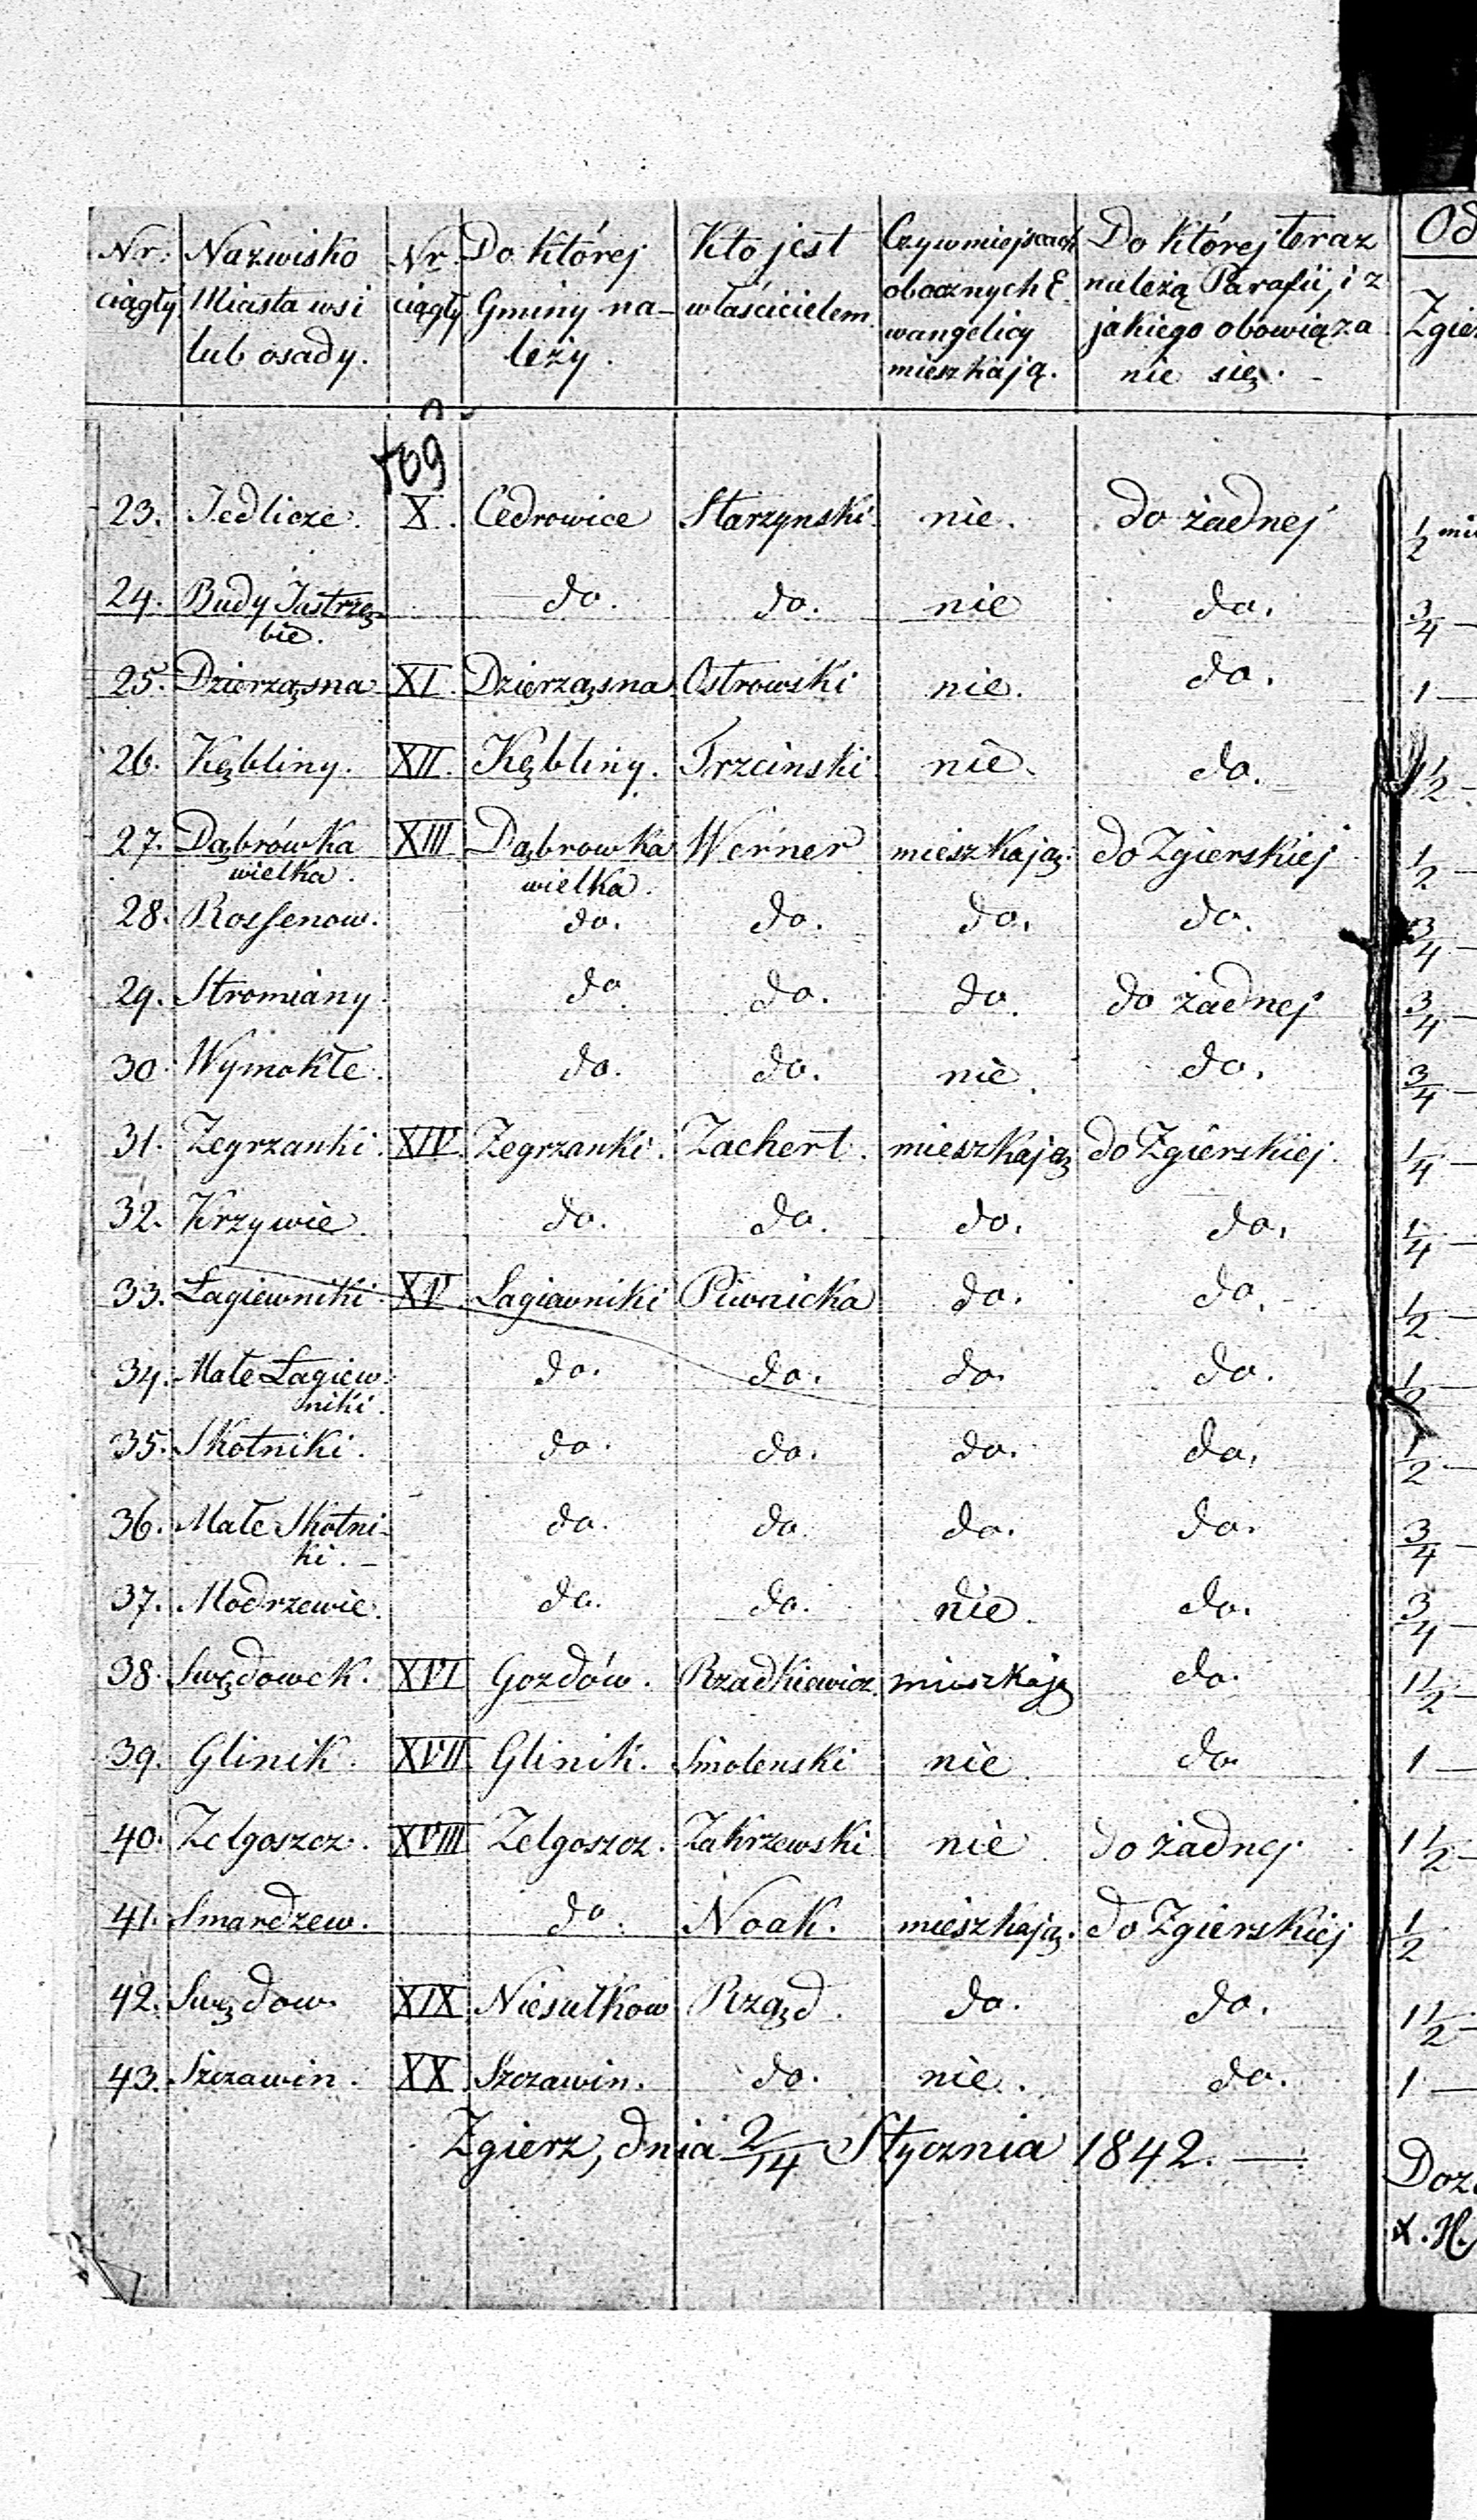 Nr: ciągły | Nazwisko Miasta wsi lub osady. | Nr ciągły | Do której Gminy na- leży. | Kto jest właścicielem | Czy w miejscach obocznych E- wangelicy mieszkają. | Do której teraz należą Parafii, i z jakiego obowiąza nie się. | Od Zgier
109
23. Jedlicze. X. Cedrowice Starzynski nie. do żadnej 1/2 mi
24. Budy Jastrzę- do. do. nie do. 3/4 —
bie.
25. Dzierząsna XI. Dzierząsna Ostrowski nie. do. 1 —
26. Kębliny. XII. Kębliny. Trzcinski nie. do. 1 1/2 —
27. Dąbrówka XIII Dąbrowka Werner mieszkają. do Zgierskiej 1/2 —
wielka. wielka.
28. Rossenow. do. do. do. do. 3/4 —
29. Stromiany. do do. do. do żadnej 3/4 —
30. Wymokłe. do. do. nie. do. 3/4 —
31. Zegrzanki. XIV. Zegrzanki. Zachert. mieszkają do Zgierskiej. 1/4 —
32. Krzywie. do. do. do. do. 1/4 —
33. Łagiewniki. XV. Lagiewniki Piwnicka do. do. 1/2 —
34. Małe Łagiew- do. do. do. do. 1/2 —
niki.
35. Skotniki. do. do. do. do. 1/2 —
36. Małe Skotni- do. do. do. do. 3/4 —
ki. —
37. Modrzewie. do. do. nie. do. 3/4 —
38. Swędowek. XVI Gozdów. Rzadkiewicz. mieszkają do. 1 1/2 —
39. Glinik. XVII Glinik. Smolenski nie. do. 1 —
40. Zelgoszcz. XVIII Zelgoszcz. Zakrzewski nie. do żadnej 1 1/2 —
41. Smardzew. do. Noak. mieszkają. do Zgierskiej 1/2
42. Swędow. XIX. Niesułkow Rząd. do. do. 1 1/2 —
43. Szczawin. XX. Szczawin. do. nie. do. 1 —
Zgierz, dnia 2/14 Stycznia 1842. —
Doz
X. H.